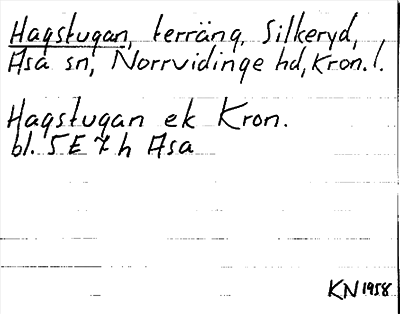 Hagstugan, terräng, Silkeryd,
Asa sn, Norrvidinge hd, Kron. l.
Hagstugan ek Kron.
bl. 5 E 7 h Asa
KN 1958